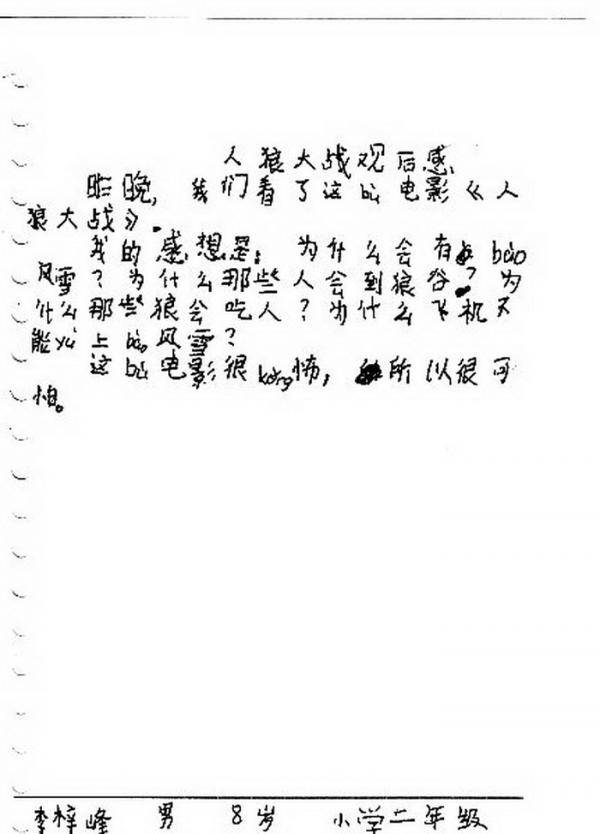 人狼大战观后感
昨晚，我们看了这bù电影《人
狼大战》.
我的感想是：为什么会有bào
风雪？为什么那些人会到狼谷？为
什么那些狼会吃人？为什么飞机不
能yù上bào风雪？
这bù电影很kǒng怖，所以很可
怕。
李梓峰 男 8岁 小学二年级